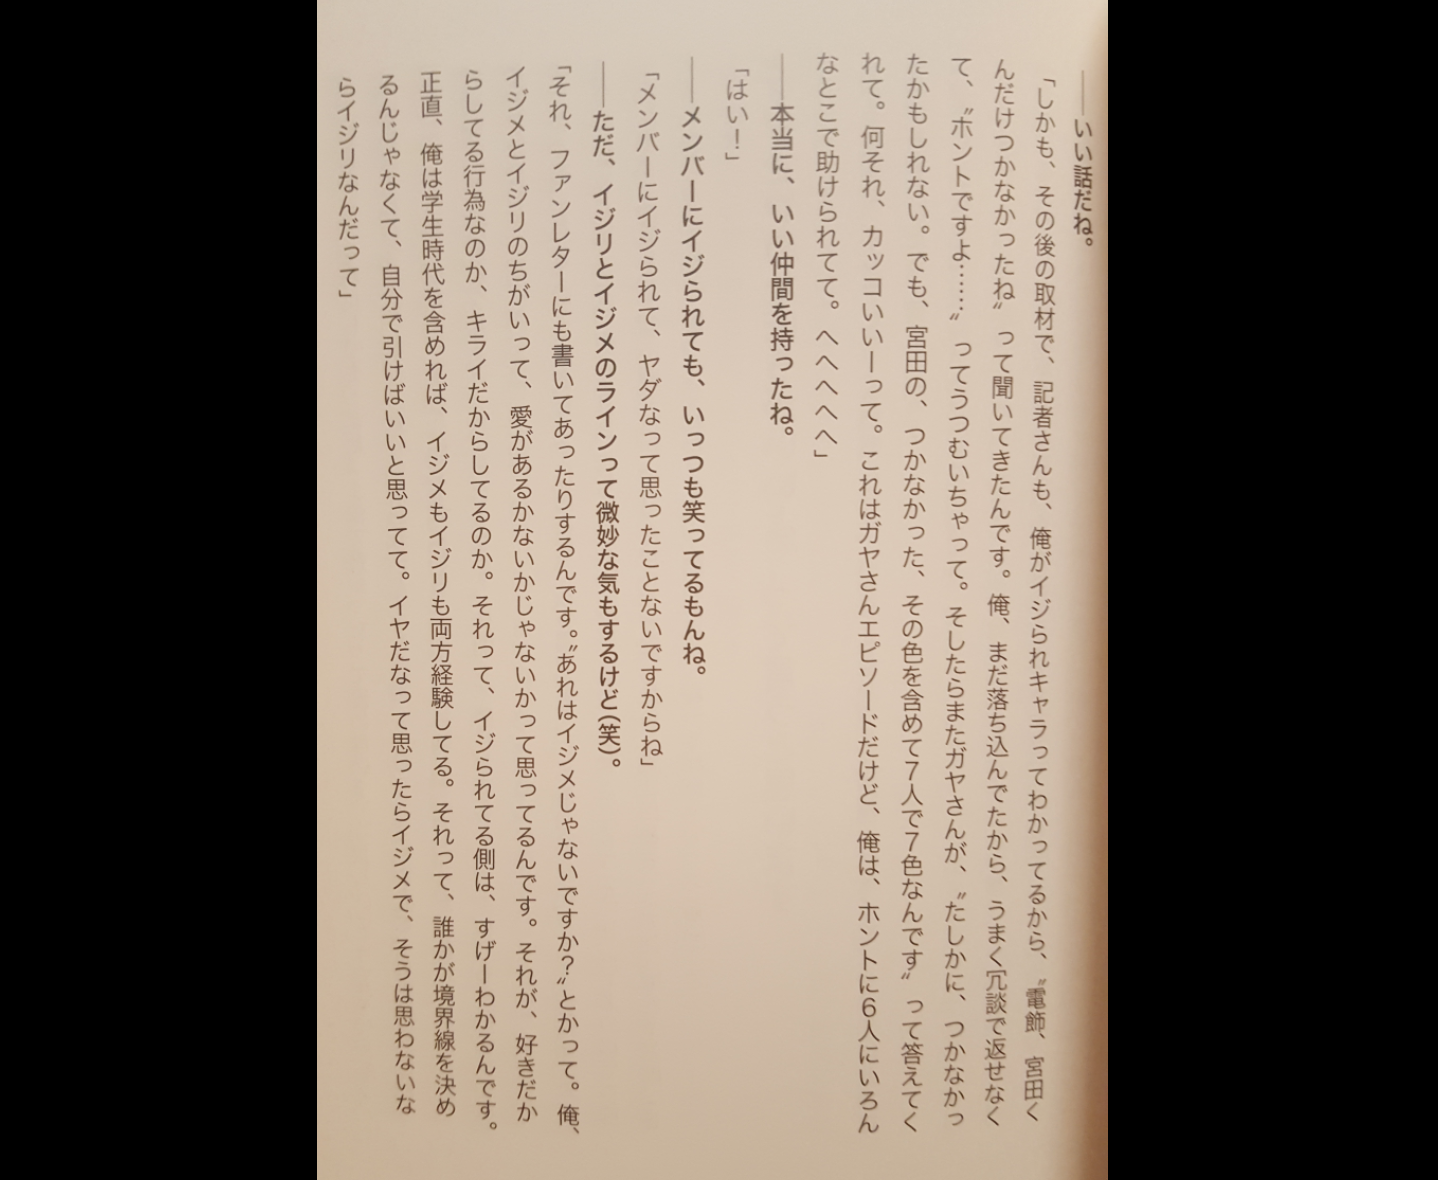 ――いい話だね。
「しかも、その後の取材で、記者さんも、俺がイジられキャラってわかってるから、〝電飾、宮田く
んだけつかなかったね〟って聞いてきたんです。俺、まだ落ち込んでたから、うまく冗談で返せなく
て、〝ホントですよ……〟ってうつむいちゃって。そしたらまたガヤさんが、〝たしかに、つかなかっ
たかもしれない。でも、宮田の、つかなかった、その色を含めて7人で7色なんです〟って答えてく
れて。何それ、カッコいいーって。これはガヤさんエピソードだけど、俺は、ホントに6人にいろん
なとこで助けられてて。へへへへへ」
――本当に、いい仲間を持ったね。
「はい！」
――メンバーにイジられても、いっつも笑ってるもんね。
「メンバーにイジられて、ヤダなって思ったことないですからね」
――ただ、イジリとイジメのラインって微妙な気もするけど(笑)。
「それ、ファンレターにも書いてあったりするんです。〝あれはイジメじゃないですか？〟とかって。俺、
イジメとイジリのちがいって、愛があるかないかじゃないかって思ってるんです。それが、好きだか
らしてる行為なのか、キライだからしてるのか。それって、イジられてる側は、すげーわかるんです。
正直、俺は学生時代を含めれば、イジメもイジリも両方経験してる。それって、誰かが境界線を決め
るんじゃなくて、自分で引けばいいと思ってて。イヤだなって思ったらイジメで、そうは思わないな
らイジリなんだって」